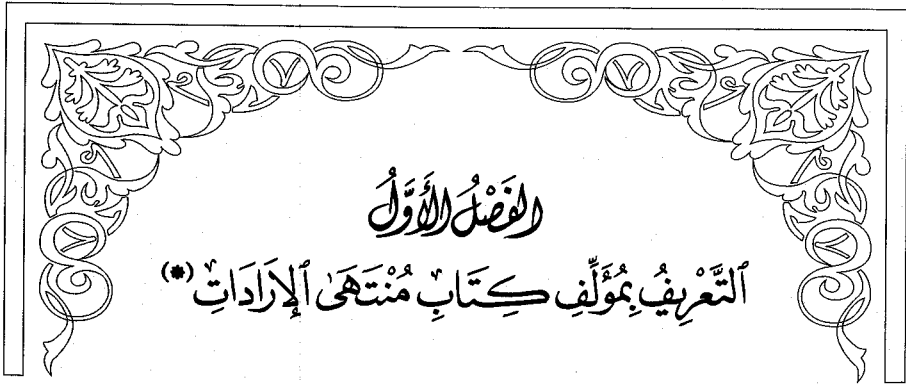 الفَصْلُ الأَوَّلُ
ٱلتَّعْرِيفُ بِمُؤَلِّفِ كِتَابِ مُنْتَهَىٰ ٱلإِرَادَاتِ (*)